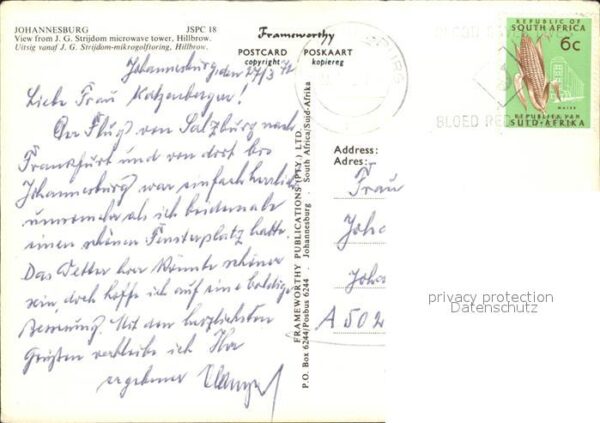 JOHANNESBURG
JSPC 18
View from J. G. Strijdom microwave tower, Hillbrow.
Uitsig vanaf J. G. Strijdom-mikrogolftoring, Hillbrow.
Frameworthy
POSTCARD POSKAART
copyright kopiereg
REPUBLIC OF
SOUTH AFRICA
6c
MAIZE
REPUBLIEK VAN
SUID-AFRIKA
BLOED RE
Johannesburg den 27/3 72
Liebe Frau Katzenberger!
Der Flug von Salzburg nach
Frankfurt und von dort bis
Johannesburg war einfach herrlich
umsomehr als ich beidemale
einen schönen Fensterplatz hatte.
Das Wetter hier könnte schöner
sein, doch hoffe ich auf eine baldige
Besserung. Mit den herzlichsten
Grüßen verbleibe ich Ihr
ergebener
FRAMEWORTHY PUBLICATIONS (PTY.) LTD.
P.O. Box 6244/Posbus 6244 . Johannesburg . South Africa/Suid-Afrika
Address:
Adres:
Frau
Joha
Joha
A 502
privacy protection
Datenschutz